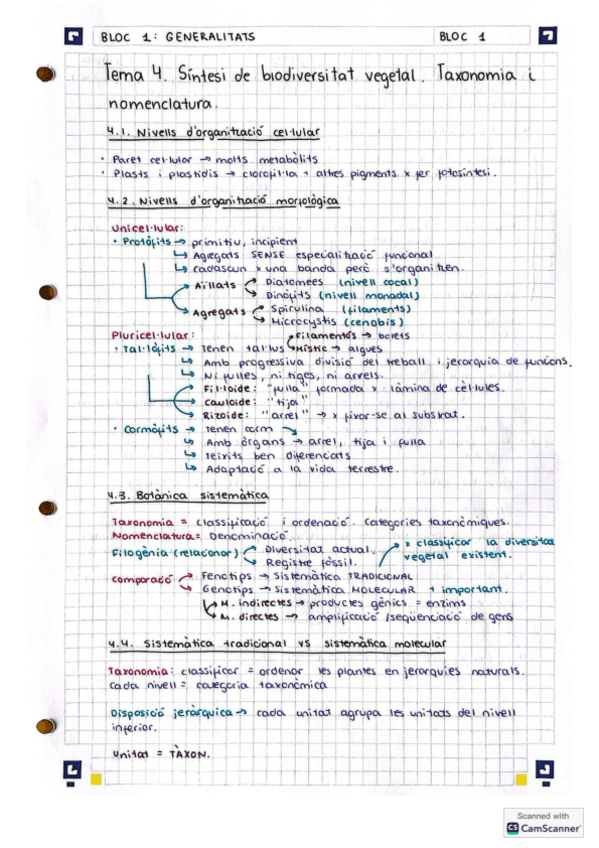 BLOC 1: GENERALITATS BLOC 1
Tema 4. Síntesi de biodiversitat vegetal. Taxonomia i
nomenclatura.
4.1. Nivells d'organització cel·lular
• Paret cel·lular → molts metabòlits
• Plasts i plastidis → clorofil·la + altres pigments x fer fotosíntesi.
4.2. Nivells d'organització morfològica
Unicel·lular:
• Protòfits → primitiu, incipient
↳ Agregats SENSE especialització funcional
↳ cadascun x una banda però s'organitzen.
Aïllats Diatomees (nivell cocal)
Dinòfits (nivell monadal)
Agregats Spirulina (filaments)
Microcystis (cenobis)
Pluricel·lular:
• Tal·lòfits → Tenen tal·lus Filamentós → bolets
Místic → algues
↳ Amb progressiva divisió del treball i jerarquia de funcions.
↳ Ni fulles, ni tiges, ni arrels.
Fil·loide: "fulla" formada x làmina de cèl·lules.
Cauloide: "tija"
Rizoide: "arrel" → x fixar-se al substrat.
• Cormòfits → Tenen corm
↳ Amb òrgans → arrel, tija i fulla
↳ Teixits ben diferenciats
↳ Adaptació a la vida terrestre.
4.3. Botànica sistemàtica
Taxonomia = classificació i ordenació. Categories taxonòmiques.
Nomenclatura = Denominació.
Filogènia (relacionar) Diversitat actual. → x classificar la diversitat
Registre fòssil. vegetal existent.
Comparació Fenotips → Sistemàtica TRADICIONAL
Genotips → Sistemàtica MOLECULAR + important.
M. indirectes → productes gènics = enzims
M. directes → amplificació/seqüenciació de gens
4.4. Sistemàtica tradicional vs sistemàtica molecular
Taxonomia: classificar = ordenar les plantes en jerarquies naturals.
Cada nivell = categoria taxonòmica
Disposició jeràrquica → cada unitat agrupa les unitats del nivell
inferior.
Unitat = TÀXON.
Scanned with
CS CamScanner